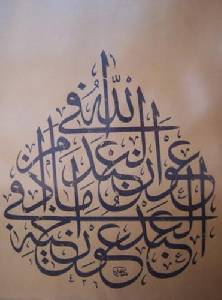 الله في
عون العبد
مادام
العبد في عون أخيه